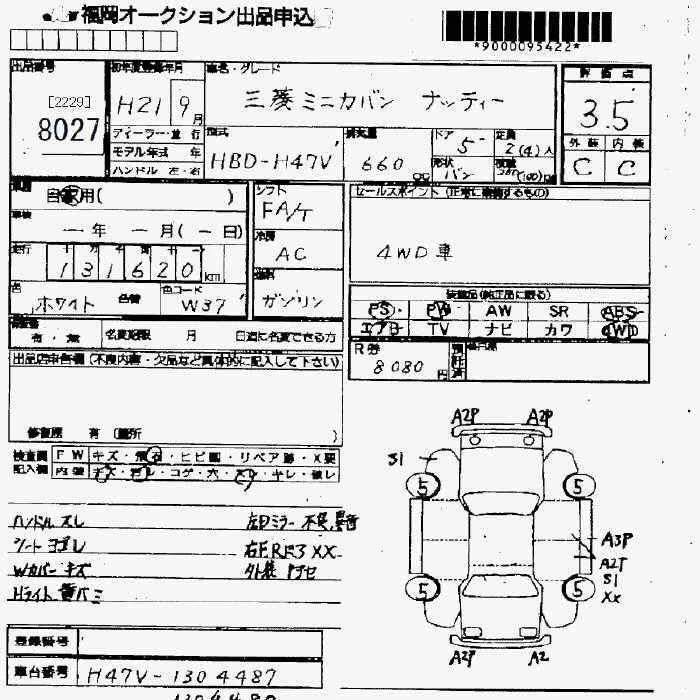 福岡オークション出品申込
*9000095422*
出品番号
[2229]
8027
初年度登録年月
H21 9月
ディーラー・並行
モデル年式 年
ハンドル 左・右
車名・グレード
三菱ミニカバン ナッティー
型式
HBD-H47V
排気量
660
ドア
5
形状
バン
定員
2(4)人
積載
評価点
3.5
外装 内装
C C
自家用( )
車検
―年 ―月(―日)
走行
131620 km
色
ホワイト
色替
色コード
W37
シフト
FA/T
冷房
AC
燃料
ガソリン
セールスポイント (正常に装備するもの)
4WD車
装備品(純正品に限る)
PS PW AW SR ABS
エアB TV ナビ カワ 4WD
有・無
名変期限 月 日迄に名変できる方
R券
8080円
預託済
出品店申告欄(不良内容・欠品など具体的に記入して下さい)
修復歴 有(箇所 )
検査員記入欄
FW キズ・飛石・ヒビ割・リペア跡・X要
内装 キズ・ヨゴレ・コゲ・穴・スレ・キレ・破レ
ハンドル スレ
シート ヨゴレ
Wカバー キズ
Hライト 黄バミ
左Dミラー 不良、異音
A2P A2P
S1
5 5
A3P
A2P
S1
XX
5 5
A2P A2
登録番号
車台番号 H47V-1304487